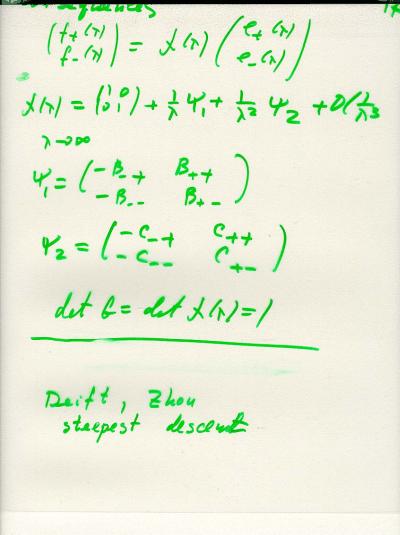 (f₊(λ) f₋(λ)) = χ(λ) (e₊(λ) e₋(λ))
χ(λ) = (1 0 0 1) + 1/λ Ψ₁ + 1/λ² Ψ₂ + O(1/λ³
λ→∞
Ψ₁ = (-B₋₊ B₊₊ -B₋₋ B₊₋)
Ψ₂ = (-C₋₊ C₊₊ -C₋₋ C₊₋)
det G = det χ(λ) = 1
Deift, Zhou
steepest descent